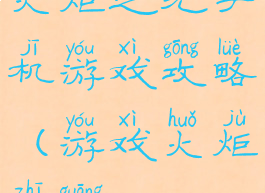 火炬之光手
jī yóu xì gōng lüè
机游戏攻略
yóu xì huǒ jù
(游戏火炬
zhī guāng